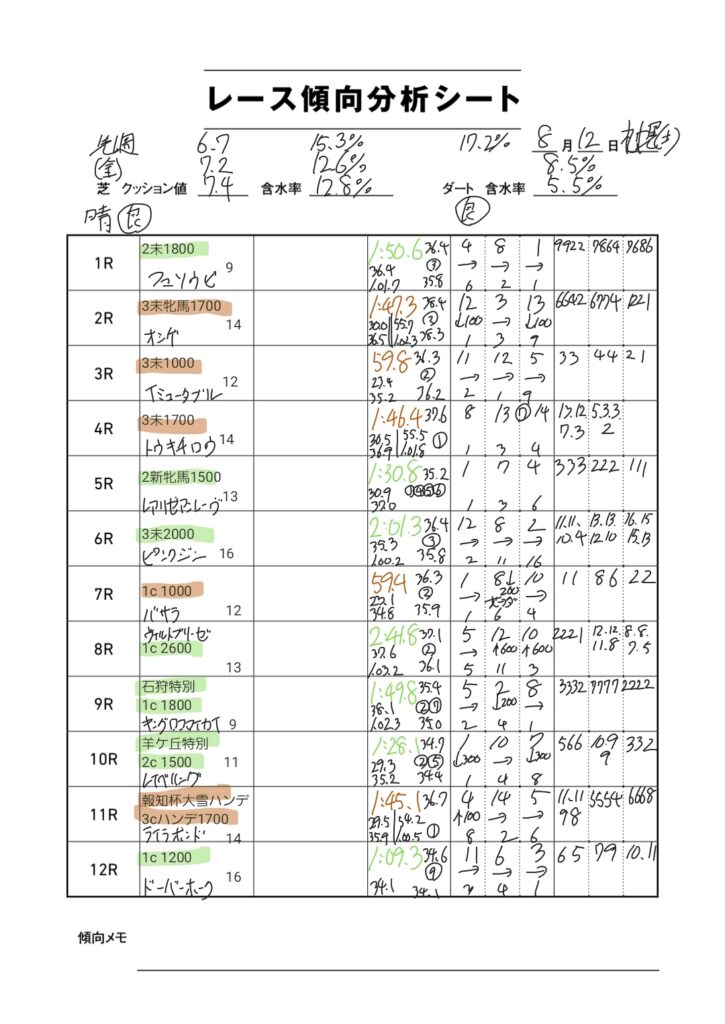 レース傾向分析シート
先週 6.7 15.3% 17.2% 8月12日 札幌(土)
(金) 7.2 12.6% 8.5%
芝 クッション値 7.4 含水率 12.8% ダート 含水率 5.5%
晴 良 良
1R 2未1800 9 1:50.6 36.4 ③ 4 8 1 9922 7864 7686
36.4 → → →
1.01.7 35.8 6 2 1
2R 3未牝馬1700 14 1:47.3 38.4 ② 12 3 13 6642 6774 1221
オンゲ 30.0 55.7 ↓100 → ↓100
36.5 1.02.3 38.3 1 3 9
3R 3未1000 12 59.8 36.3 ② 11 12 5 33 44 21
イミュータブル 23.4 → → →
35.2 36.2 2 1 9
4R 3未1700 14 1:46.4 37.6 ① 8 13 14 5.3.3
トウキチロウ 30.5 55.5 7.3 2
36.9 1.01.8 1 3 4
5R 2新牝馬1500 13 1:30.8 35.2 1 7 4 333 222 111
30.9
37.0 1 3 6
6R 3未2000 16 2:01.3 36.4 ③ 12 8 2 11.11. 13.13. 16.15
ピンクジン 35.3 → → → 10.4 12.10 15.13
1.00.2 35.8 2 11 16
7R 1c 1000 12 59.4 36.3 ② 1 8 10 11 86 22
バサラ → ↓200 →
34.8 35.9 1 6 4
8R ヴィルトブリーゼ 2:41.8 37.1 ② 5 12 10 2221 12.12. 8.8.
1c 2600 13 37.6 → ↑600 ↑600 11.8 7.5
1.03.2 36.1 5 11 3
9R 石狩特別 1:49.8 35.4 5 2 8 3332 7777 2222
1c 1800 38.1 → ↓200 →
9 1.02.3 35.0 2 4 1
10R 羊ケ丘特別 11 1:28.1 34.7 ②⑤ 1 10 7 566 10.9 332
2c 1500 29.3 ↓300 → ↓300 9
レイベリング 35.2 34.4 1 4 8
11R 報知杯大雪ハンデ 1:45.1 36.7 ① 4 14 5 11.11 5554 6668
3cハンデ1700 29.5 54.2 ↑100 → → 98
ライラボンド 14 35.9 1.00.5 8 2 6
12R 1c 1200 16 1:09.3 34.6 ⑨ 11 6 3 65 79 10.11
ドーバーホーク 34.1 34.1 → → →
4 1
傾向メモ